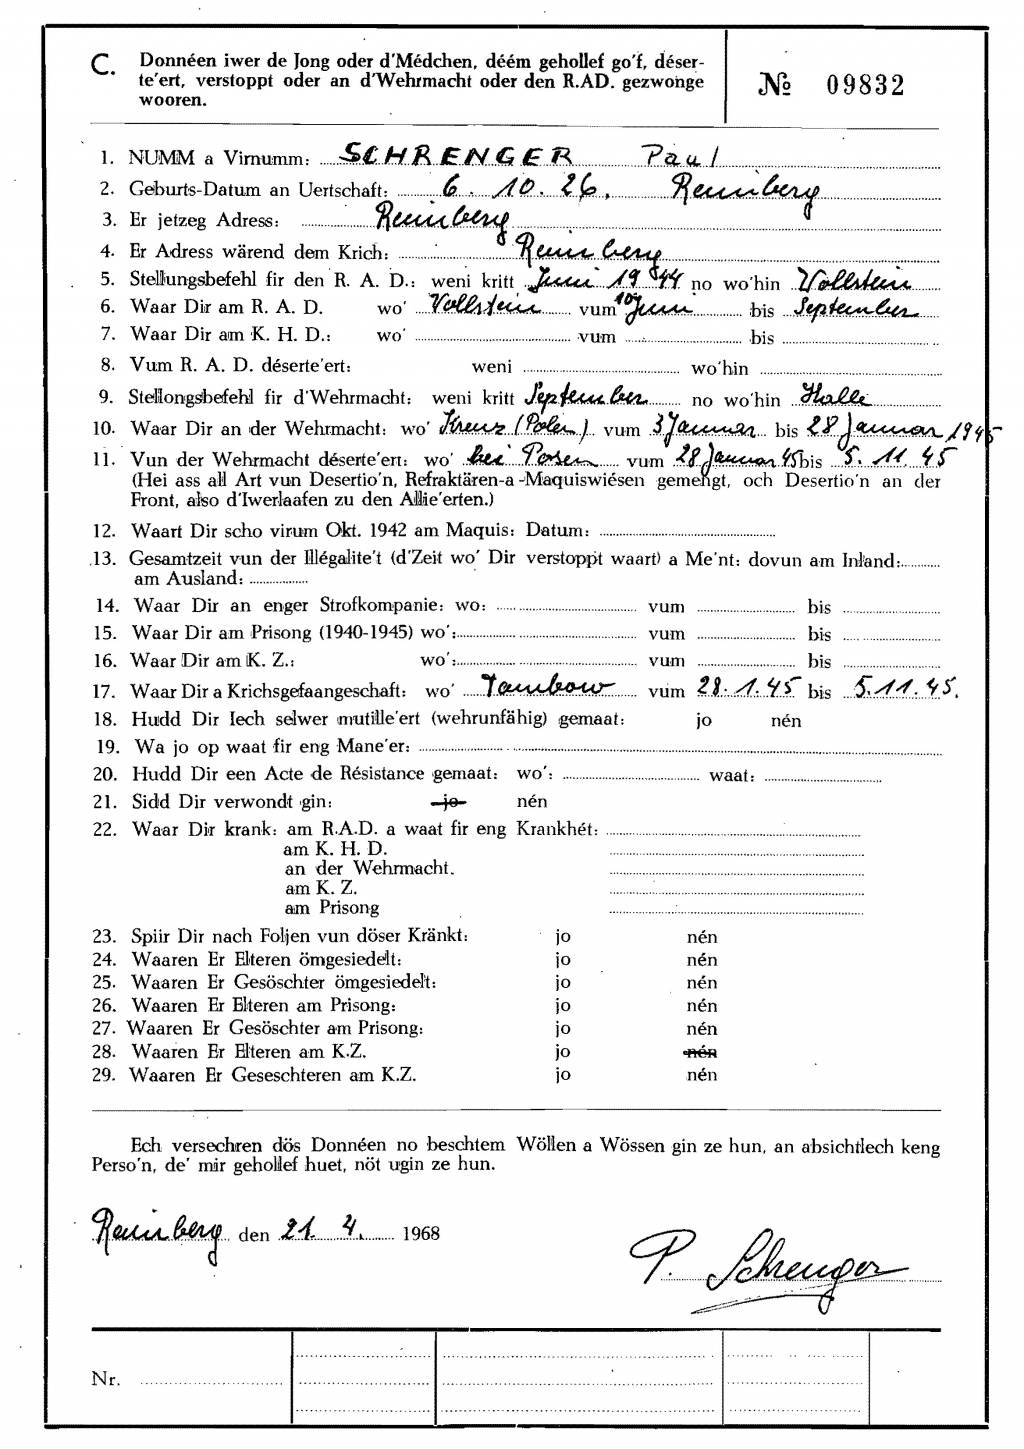 C. Donnéen iwer de Jong oder d'Médchen, déém gehollef go'f, déser-
te'ert, verstoppt oder an d'Wehrmacht oder den R.AD. gezwonge
wooren.
№ 09832
1. NUMM a Virnumm: SCHRENGER Paul
2. Geburts-Datum an Uertschaft: 6. 10. 26. Remberg
3. Er jetzeg Adress: Remberg
4. Er Adress wärend dem Krich: Remberg
5. Stellungsbefehl fir den R. A. D.: weni kritt Juni 1944 no wo'hin Wollstein
6. Waar Dir am R. A. D. wo' Vollstein vum 10 Juni bis September
7. Waar Dir am K. H. D.: wo' vum bis
8. Vum R. A. D. déserte'ert: weni wo'hin
9. Stellongsbefehl fir d'Wehrmacht: weni kritt September no wo'hin Halle
10. Waar Dir an der Wehrmacht: wo' Kreuz (Polen) vum 3 Januar bis 28 Januar 1945
11. Vun der Wehrmacht déserte'ert: wo' bei Posen vum 28 Januar 45 bis 5. 11. 45
(Hei ass all Art vun Desertio'n, Refraktären-a-Maquiswiésen gemengt, och Desertio'n an der
Front, also d'Iwerlaafen zu den Allie'erten.)
12. Waart Dir scho virum Okt. 1942 am Maquis: Datum:
13. Gesamtzeit vun der Illégalite't (d'Zeit wo' Dir verstoppt waart) a Me'nt: dovun am Inland:
am Ausland:
14. Waar Dir an enger Strofkompanie: wo: vum bis
15. Waar Dir am Prisong (1940-1945) wo': vum bis
16. Waar Dir am K. Z.: wo': vum bis
17. Waar Dir a Krichsgefaangeschaft: wo' Tambow vum 28. 1. 45 bis 5. 11. 45.
18. Hudd Dir Iech selwer mutille'ert (wehrunfähig) gemaat: jo nén
19. Wa jo op waat fir eng Mane'er:
20. Hudd Dir een Acte de Résistance gemaat: wo': waat:
21. Sidd Dir verwondt gin: jo nén
22. Waar Dir krank: am R.A.D. a waat fir eng Krankhét:
am K. H. D.
an der Wehrmacht.
am K. Z.
am Prisong
23. Spiir Dir nach Foljen vun döser Kränkt: jo nén
24. Waaren Er Elteren ömgesiedelt: jo nén
25. Waaren Er Gesöschter ömgesiedelt: jo nén
26. Waaren Er Elteren am Prisong: jo nén
27. Waaren Er Gesöschter am Prisong: jo nén
28. Waaren Er Elteren am K.Z. jo nén
29. Waaren Er Geseschteren am K.Z. jo nén
Ech versechren dös Donnéen no beschtem Wöllen a Wössen gin ze hun, an absichtlech keng
Perso'n, de' mir gehollef huet, nöt ugin ze hun.
Remberg den 21. 4. 1968
P. Schrenger
Nr.